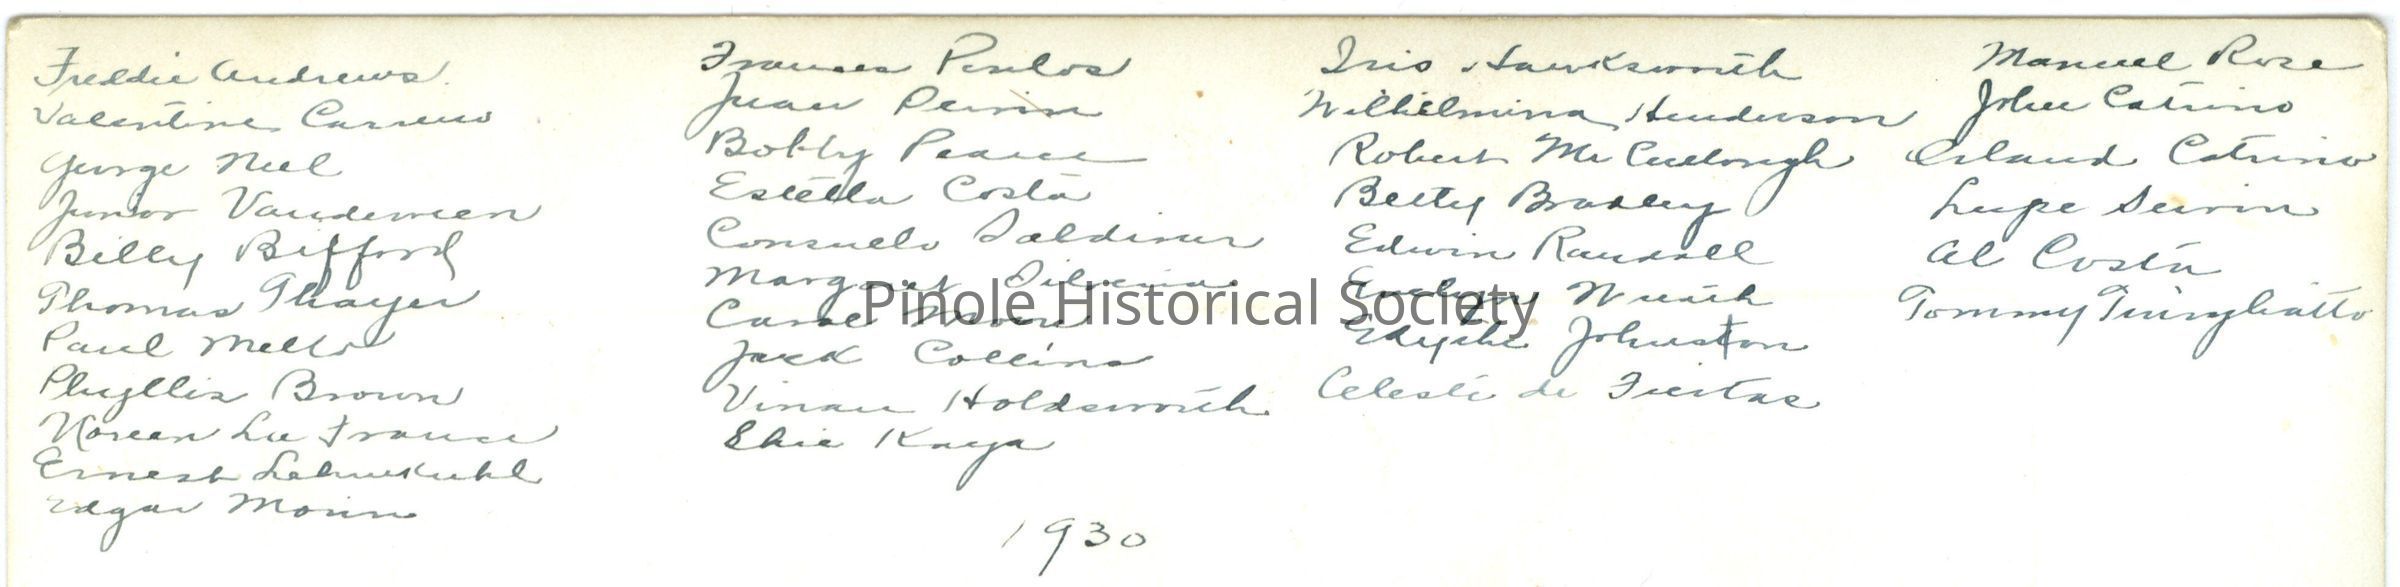 Freddie Andrews
Valentine Carreno
George Neel
Junior Vanderveen
Billy Bifford
Thomas Thayer
Paul Mello
Phyllis Brown
Noreen La France
Ernest Lehmkuhl
Edgar Morin
Frances Poulos
Juan
Bobby Pearce
Estella Costa
Consuelo Saldivar
Margaret Silveira
Carol
Jack Collins
Holdsworth
Kaya
Iris Hawksworth
Wilhelmina Henderson
Robert McCullough
Betty Bradley
Edwin Randall
Evelyn
Edythe Johnston
Celeste de Freitas
Manuel Rose
John Catrino
Leland Catrino
Lupe
Al Costa
Tommy
1930
Pinole Historical Society